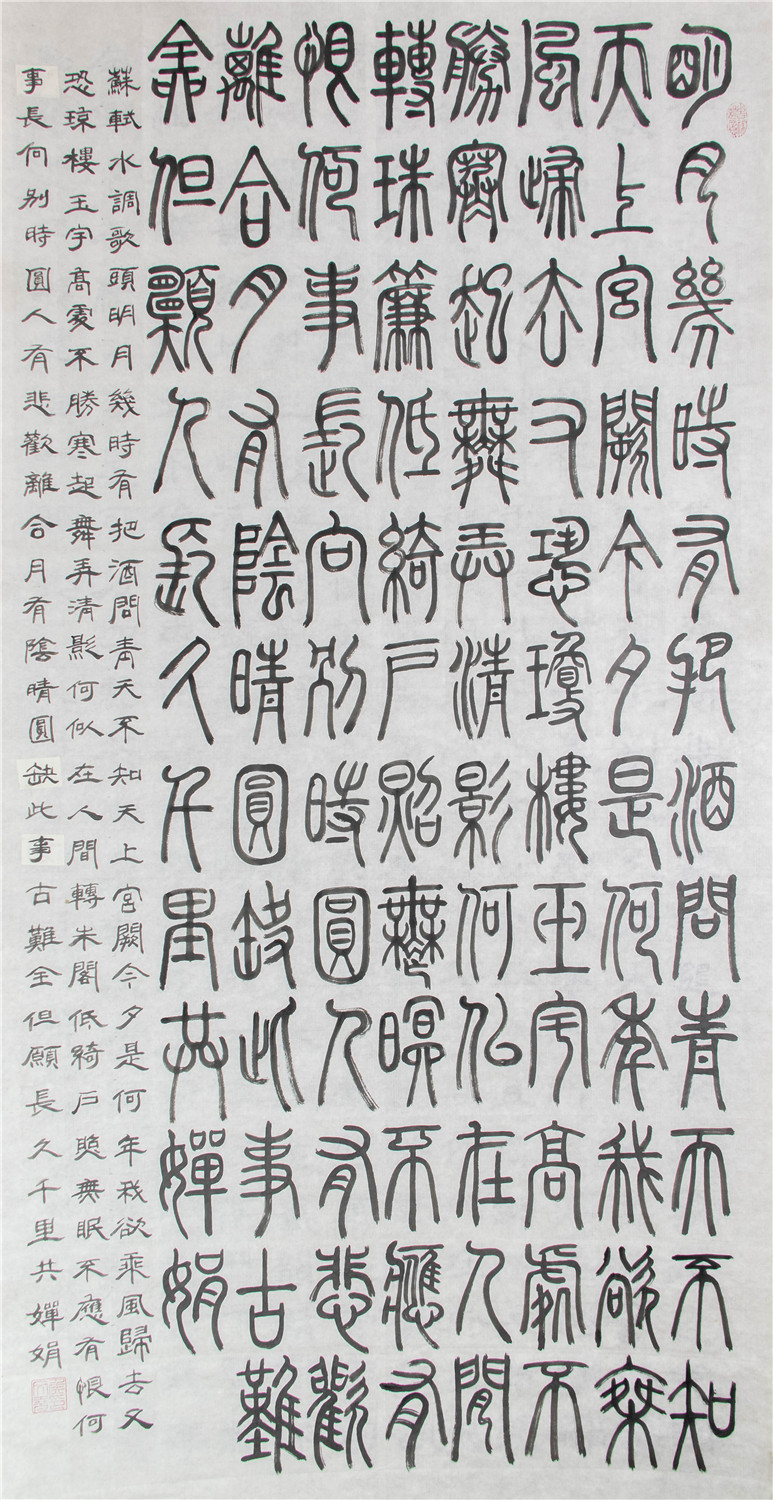 明月幾時有把酒問青天不知
天上宮闕今夕是何年我欲乘
風歸去又恐瓊樓玉宇高處不
勝寒起舞弄清影何似在人間
轉珠簾低綺戶照無暝不應有
恨何事長向別時圓人有悲歡
離合月有陰晴圓缺此事古難
全但願人長久千里共嬋娟
蘇軾水調歌頭明月幾時有把酒問青天不知天上宮闕今夕是何年我欲乘風歸去又
恐琼樓玉宇高處不勝寒起舞弄清影何似在人間轉朱閣低綺戶照無眠不應有恨何
事長向别時圓人有悲歡離合月有陰晴圓缺此事古難全但願長久千里共嬋娟